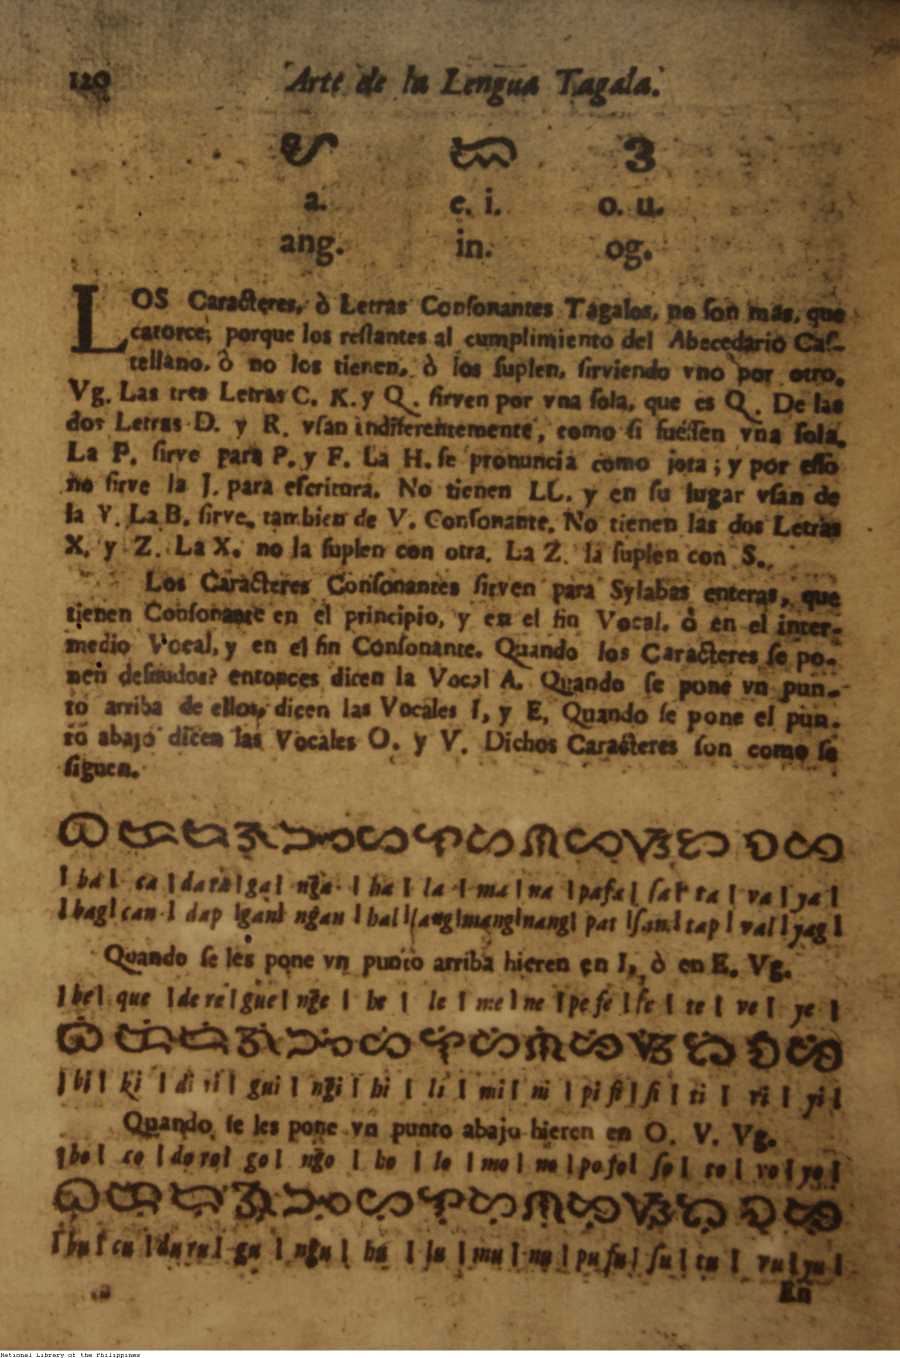 120 Arte de la Lengua Tagala.
ᜀ ᜁ ᜂ
a. e. i. o. u.
ang. in. og.
LOS Caracteres, ò Letras Consonantes Tagalos, no son mas, que
catorce; porque los restantes al cumplimiento del Abecedario Cas-
tellano, ò no los tienen, ò los suplen, sirviendo vno por otro.
Vg. Las tres Letras C. K. y Q. sirven por vna sola, que es Q. De las
dos Letras D. y R. vsan indiferentemente, como si fuessen vna sola.
La P. sirve para P. y F. La H. se pronuncia como jota; y por esso
no sirve la J. para escritura. No tienen LL. y en su lugar vsan de
la Y. La B. sirve, tambien de V. Consonante. No tienen las dos Letras
X. y Z. La X. no la suplen con otra. La Z. la suplen con S.
Los Caracteres Consonantes sirven para Sylabas enteras, que
tienen Consonante en el principio, y en el fin Vocal. ò en el inter-
medio Vocal, y en el fin Consonante. Quando los Caracteres se po-
nen desnudos? entonces dicen la Vocal A. Quando se pone vn pun-
to arriba de ellos, dicen las Vocales I, y E, Quando se pone el pun-
to abajo dicen las Vocales O. y V. Dichos Caracteres son como se
siguen.
| ba | ca | da ra | ga | nga | ha | la | ma | na | pa fa | sa | ta | va | ya |
| bag | can | dap | gan | ngan | hal | lang | mang | nang | pat | san | tap | val | yag |
Quando se les pone vn punto arriba hieren en I, ò en E. Vg.
| be | que | de re | gue | nge | he | le | me | ne | pe fe | se | te | ve | ye |
| bi | ki | di ri | gui | ngi | hi | li | mi | ni | pi fi | si | ti | vi | yi |
Quando se les pone vn punto abajo hieren en O. V. Vg.
| bo | co | do ro | go | ngo | ho | lo | mo | no | po fo | so | to | vo | yo |
| bu | cu | du ru | gu | ngu | hu | lu | mu | nu | pu fu | su | tu | vu | yu |
En
National Library of the Philippines